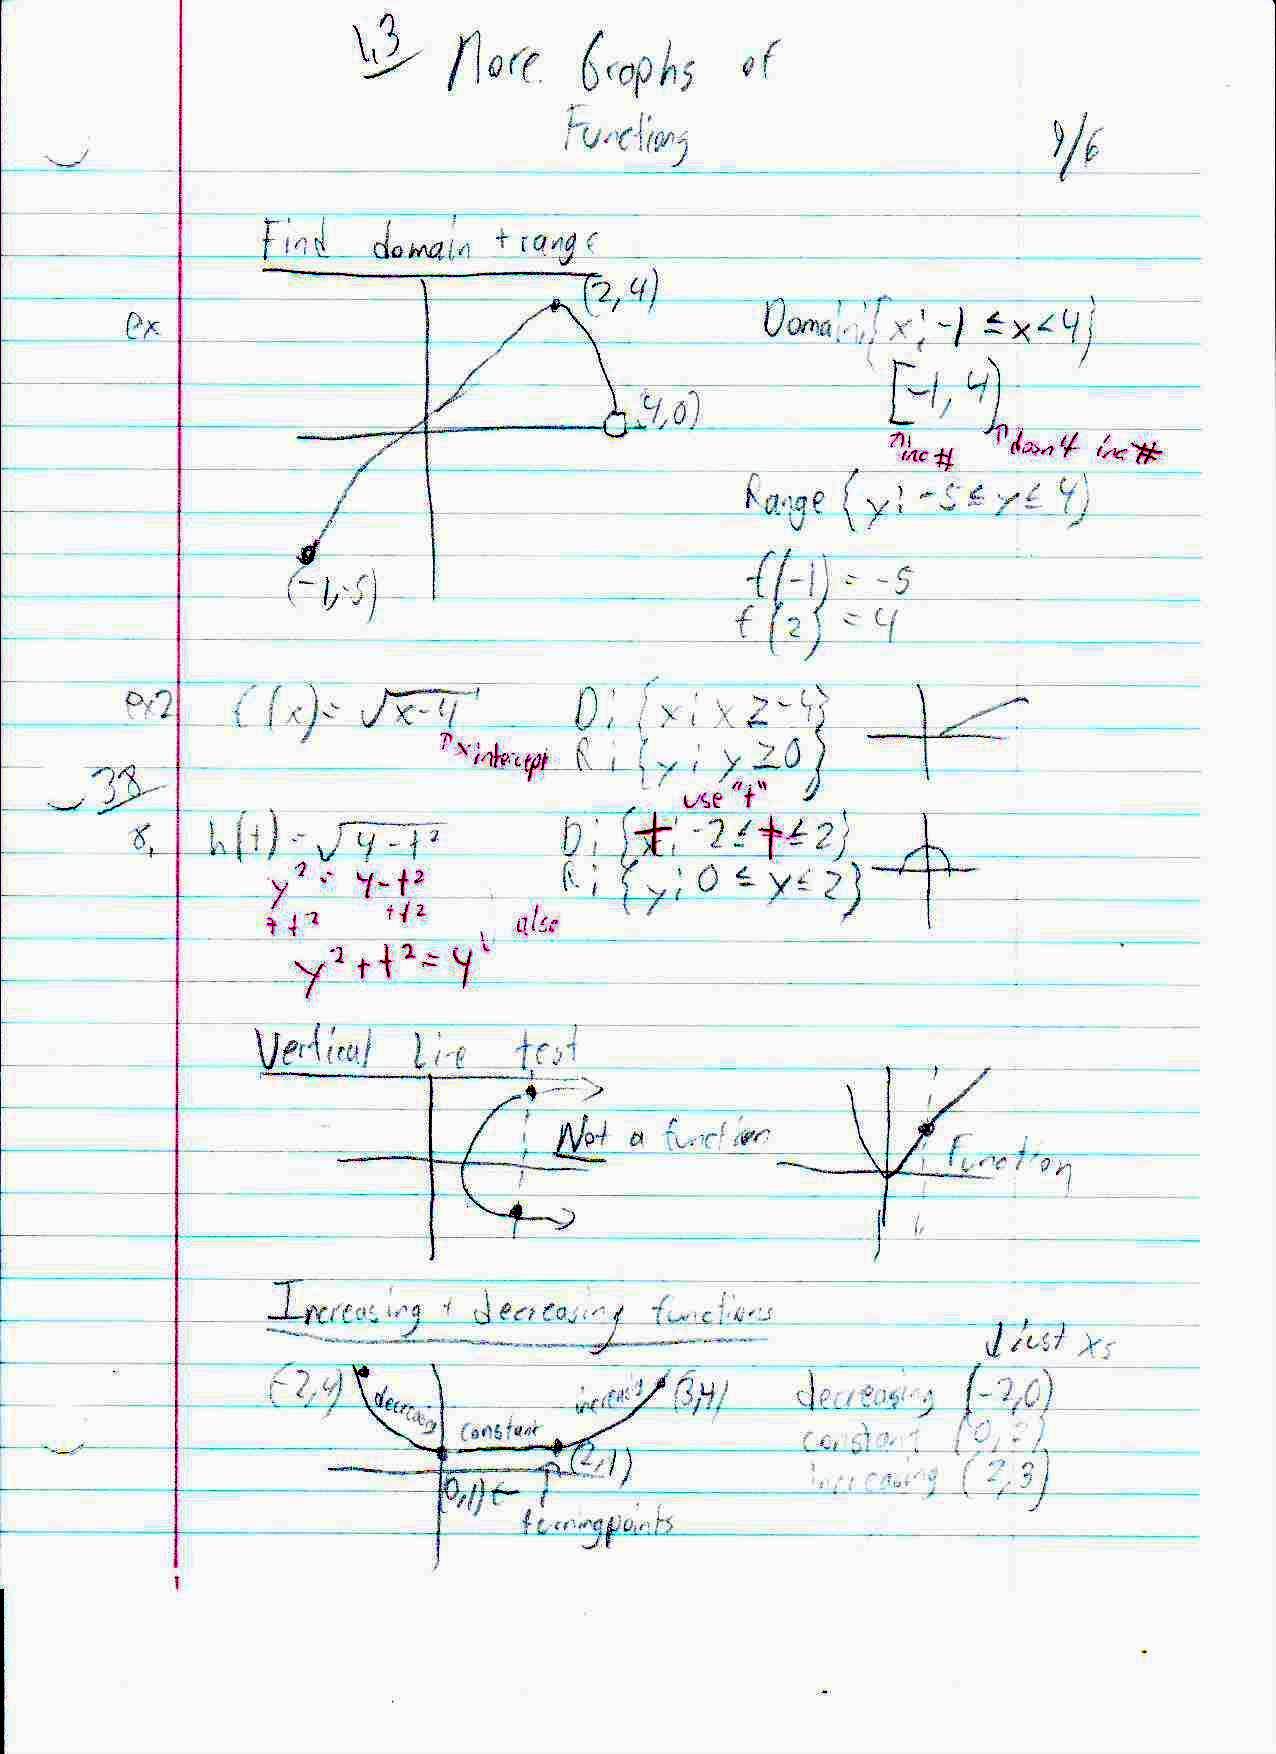 1.3 More Graphs of
Functions
9/6
Find domain + range
ex
(2,4)
(4,0)
(-1,-5)
Domain: {x: -1 ≤ x < 4}
[-1, 4)
↑ inc #
↑ doesn't inc #
Range {y: -5 ≤ y ≤ 4}
f(-1) = -5
f(2) = 4
ex2 f(x) = √x-4 D: {x: x ≥ -4}
↑ x intercept R: {y: y ≥ 0}
38
use "t"
8. h(t) = √4-t² D: {t: -2 ≤ t ≤ 2}
y² = 4-t² R: {y: 0 ≤ y ≤ 2}
+t² +t² also
y² + t² = 4
Vertical Line test
Not a function
Function
Increasing + decreasing functions
↓ just xs
(-2,4) decreasing constant increasing (3,4)
(0,1) ← (2,1)
turning points
decreasing (-2,0)
constant (0,2)
increasing (2,3)